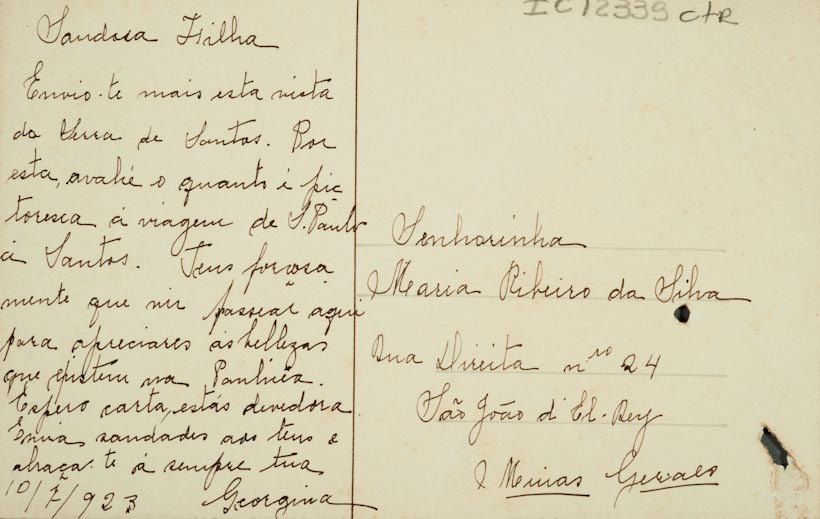 IC12339 CtR
Saudosa Filha
Envio-te mais esta vista
da Serra de Santos. Por
esta, avalie o quanto é pic
toresca á viagem de S. Paulo
á Santos. Tens forçosa
mente que vir passear aqui
para apreciares as bellezas
que existem na Paulicéa.
Espero carta, estás devedora
Envia saudades aos teus e
abraça-te á sempre tua
10/7/923 Georgina
Senhorinha
Maria Ribeiro da Silva
Rua Direita nro 24
São João d'El-Rey
Minas Geraes